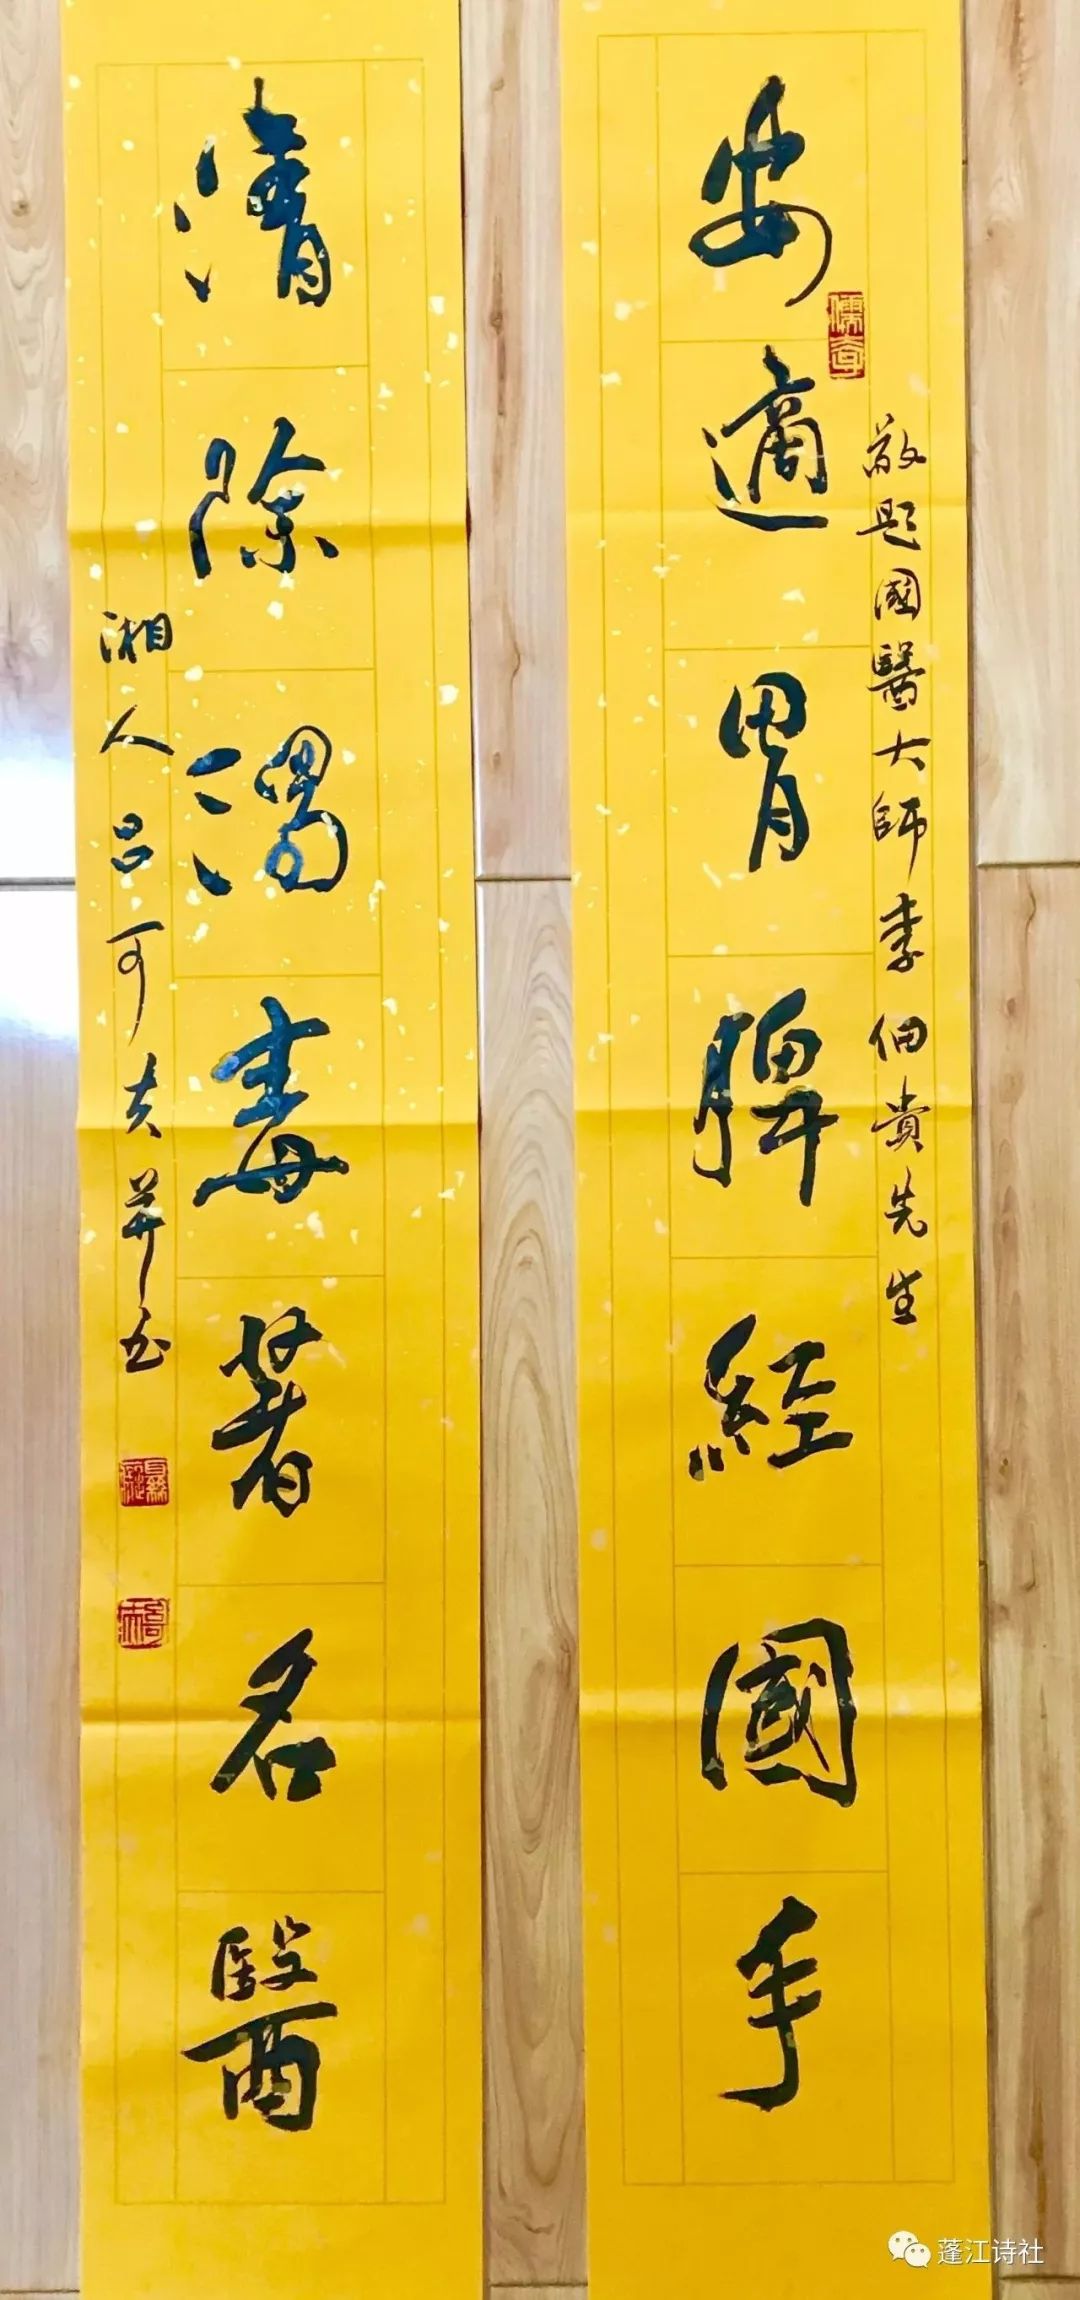 安適胃脾經國手
敬題國醫大師李佃貴先生
清除濁毒著名醫
湘人吕可夫并书
蓬江诗社